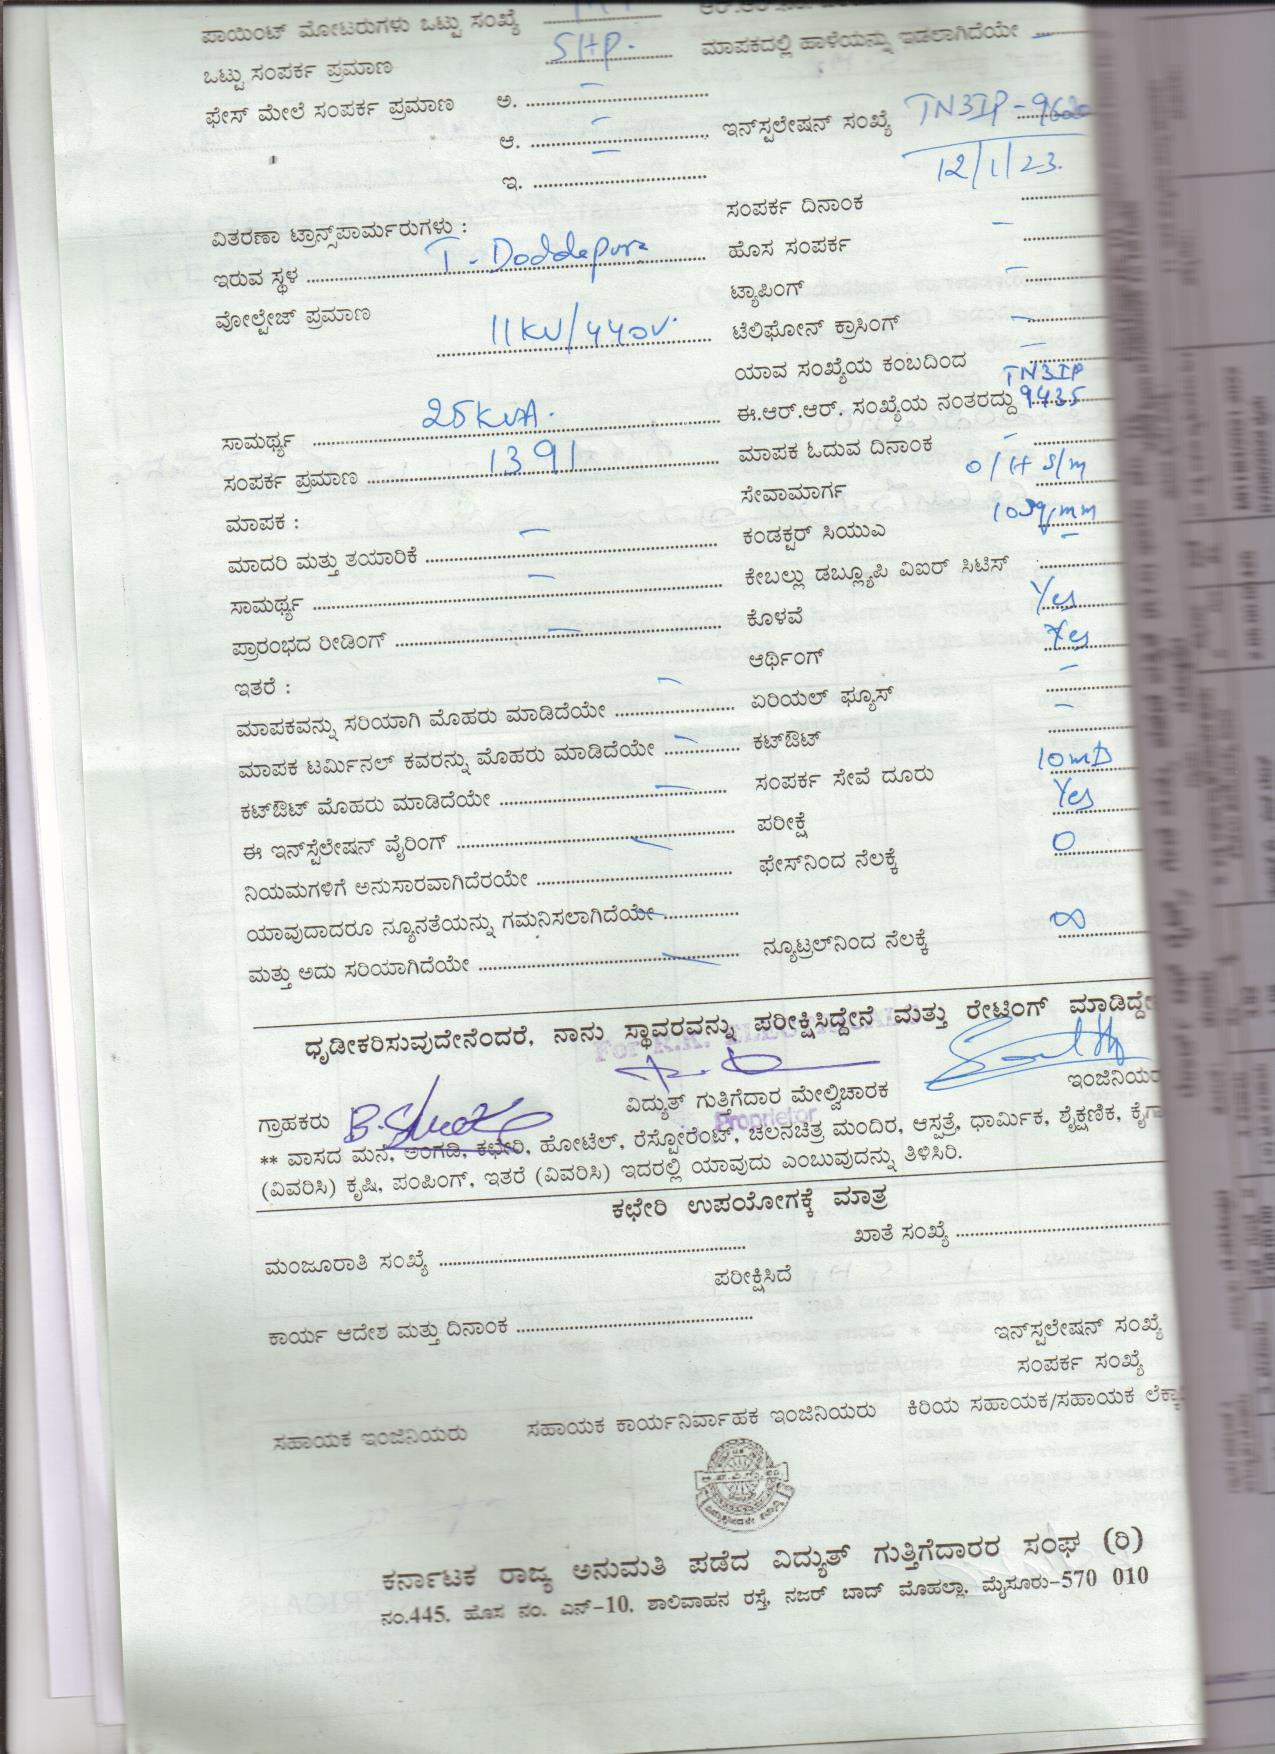 ಪಾಯಿಂಟ್ ಮೋಟರುಗಳು ಒಟ್ಟು ಸಂಖ್ಯೆ
ಒಟ್ಟು ಸಂಪರ್ಕ ಪ್ರಮಾಣ 5HP. ಮಾಪಕದಲ್ಲಿ ಹಾಳೆಯನ್ನು ಇಡಲಾಗಿದೆಯೇ –
ಫೇಸ್ ಮೇಲೆ ಸಂಪರ್ಕ ಪ್ರಮಾಣ ಅ. –
ಆ. – ಇನ್‌ಸ್ಟಲೇಷನ್ ಸಂಖ್ಯೆ TN3IP-
ಇ. –
ಸಂಪರ್ಕ ದಿನಾಂಕ 12/1/23.
ವಿತರಣಾ ಟ್ರಾನ್ಸ್‌ಪಾರ್ಮರುಗಳು : ಹೊಸ ಸಂಪರ್ಕ –
ಇರುವ ಸ್ಥಳ T. Doddepura ಟ್ಯಾಪಿಂಗ್ –
ವೋಲ್ಟೇಜ್ ಪ್ರಮಾಣ 11KV/440V. ಟೆಲಿಫೋನ್ ಕ್ರಾಸಿಂಗ್ –
ಯಾವ ಸಂಖ್ಯೆಯ ಕಂಬದಿಂದ –
ಸಾಮರ್ಥ್ಯ 25KVA. ಈ.ಆರ್.ಆರ್. ಸಂಖ್ಯೆಯ ನಂತರದ್ದು TN3IP 9435
ಸಂಪರ್ಕ ಪ್ರಮಾಣ 1391 ಮಾಪಕ ಓದುವ ದಿನಾಂಕ –
ಮಾಪಕ : ಸೇವಾಮಾರ್ಗ O/H S/m
ಮಾದರಿ ಮತ್ತು ತಯಾರಿಕೆ – ಕಂಡಕ್ಟರ್ ಸಿಯುಎ 10sq/mm
ಸಾಮರ್ಥ್ಯ – ಕೇಬಲ್ಲು ಡಬ್ಲ್ಯೂಪಿ ವಿಐರ್ ಸಿಟಿಸ್ –
ಪ್ರಾರಂಭದ ರೀಡಿಂಗ್ – ಕೊಳವೆ Yes
ಇತರೆ : ಆರ್ಥಿಂಗ್ Yes
ಮಾಪಕವನ್ನು ಸರಿಯಾಗಿ ಮೊಹರು ಮಾಡಿದೆಯೇ – ಏರಿಯಲ್ ಫ್ಯೂಸ್ –
ಮಾಪಕ ಟರ್ಮಿನಲ್ ಕವರನ್ನು ಮೊಹರು ಮಾಡಿದೆಯೇ – ಕಟ್‌ಔಟ್ –
ಕಟ್‌ಔಟ್ ಮೊಹರು ಮಾಡಿದೆಯೇ – ಸಂಪರ್ಕ ಸೇವೆ ದೂರು
ಈ ಇನ್‌ಸ್ಟೆಲೇಷನ್ ವೈರಿಂಗ್ – ಪರೀಕ್ಷೆ Yes
ನಿಯಮಗಳಿಗೆ ಅನುಸಾರವಾಗಿದೆರಯೇ ಫೇಸ್‌ನಿಂದ ನೆಲಕ್ಕೆ 0
ಯಾವುದಾದರೂ ನ್ಯೂನತೆಯನ್ನು ಗಮನಿಸಲಾಗಿದೆಯೇ –
ಮತ್ತು ಅದು ಸರಿಯಾಗಿದೆಯೇ – ನ್ಯೂಟ್ರಲ್‌ನಿಂದ ನೆಲಕ್ಕೆ ∞
ಧೃಡೀಕರಿಸುವುದೇನೆಂದರೆ, ನಾನು ಸ್ಥಾವರವನ್ನು ಪರೀಕ್ಷಿಸಿದ್ದೇನೆ ಮತ್ತು ರೇಟಿಂಗ್ ಮಾಡಿದ್ದೇ
For
ಗ್ರಾಹಕರು ವಿದ್ಯುತ್ ಗುತ್ತಿಗೆದಾರ ಮೇಲ್ವಿಚಾರಕ ಇಂಜಿನಿಯರ
Proprietor
** ವಾಸದ ಮನೆ, ಅಂಗಡಿ, ಕಛೇರಿ, ಹೋಟೆಲ್, ರೆಸ್ಟೋರೆಂಟ್, ಚಲನಚಿತ್ರ ಮಂದಿರ, ಆಸ್ಪತ್ರೆ, ಧಾರ್ಮಿಕ, ಶೈಕ್ಷಣಿಕ, ಕೈಗಾ
(ವಿವರಿಸಿ) ಕೃಷಿ, ಪಂಪಿಂಗ್, ಇತರೆ (ವಿವರಿಸಿ) ಇದರಲ್ಲಿ ಯಾವುದು ಎಂಬುವುದನ್ನು ತಿಳಿಸಿರಿ.
ಕಛೇರಿ ಉಪಯೋಗಕ್ಕೆ ಮಾತ್ರ
ಮಂಜೂರಾತಿ ಸಂಖ್ಯೆ ಖಾತೆ ಸಂಖ್ಯೆ
ಪರೀಕ್ಷಿಸಿದೆ
ಕಾರ್ಯ ಆದೇಶ ಮತ್ತು ದಿನಾಂಕ ಇನ್‌ಸ್ಟಲೇಷನ್ ಸಂಖ್ಯೆ
ಸಂಪರ್ಕ ಸಂಖ್ಯೆ
ಸಹಾಯಕ ಇಂಜಿನಿಯರು ಸಹಾಯಕ ಕಾರ್ಯನಿರ್ವಾಹಕ ಇಂಜಿನಿಯರು ಕಿರಿಯ ಸಹಾಯಕ/ಸಹಾಯಕ ಲೆಕ್ಕಾ
ಕರ್ನಾಟಕ ರಾಜ್ಯ ಅನುಮತಿ ಪಡೆದ ವಿದ್ಯುತ್ ಗುತ್ತಿಗೆದಾರರ ಸಂಘ (ರಿ)
ನಂ.445, ಹೊಸ ನಂ. ಎನ್-10, ಶಾಲಿವಾಹನ ರಸ್ತೆ, ನಜರ್ ಬಾದ್ ಮೊಹಲ್ಲಾ, ಮೈಸೂರು-570 010